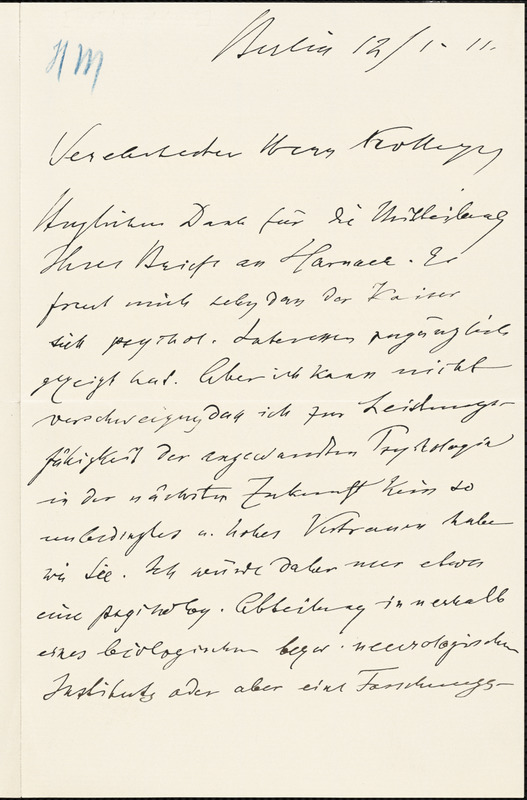 HM
Berlin 12/1. 11.
Verehrtester Herr Kollege,
Herzlichen Dank für die Mitteilung
Ihres Briefs an Harnack. Es
freut mich sehr, dass der Kaiser
sich psychol. Interessen zugänglich
gezeigt hat. Aber ich kann nicht
verschweigen, dass ich zur Leistungs-
fähigkeit der angewandten Psychologie
in der nächsten Zukunft kein so
unbedingtes u. hohes Vertrauen habe
wie Sie. Ich würde daher nur etwa
eine psycholog. Abteilung innerhalb
eines biologischen bezw. neurologischen
Instituts oder aber eine Forschungs-